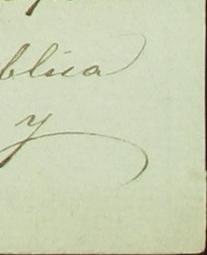 blica
y